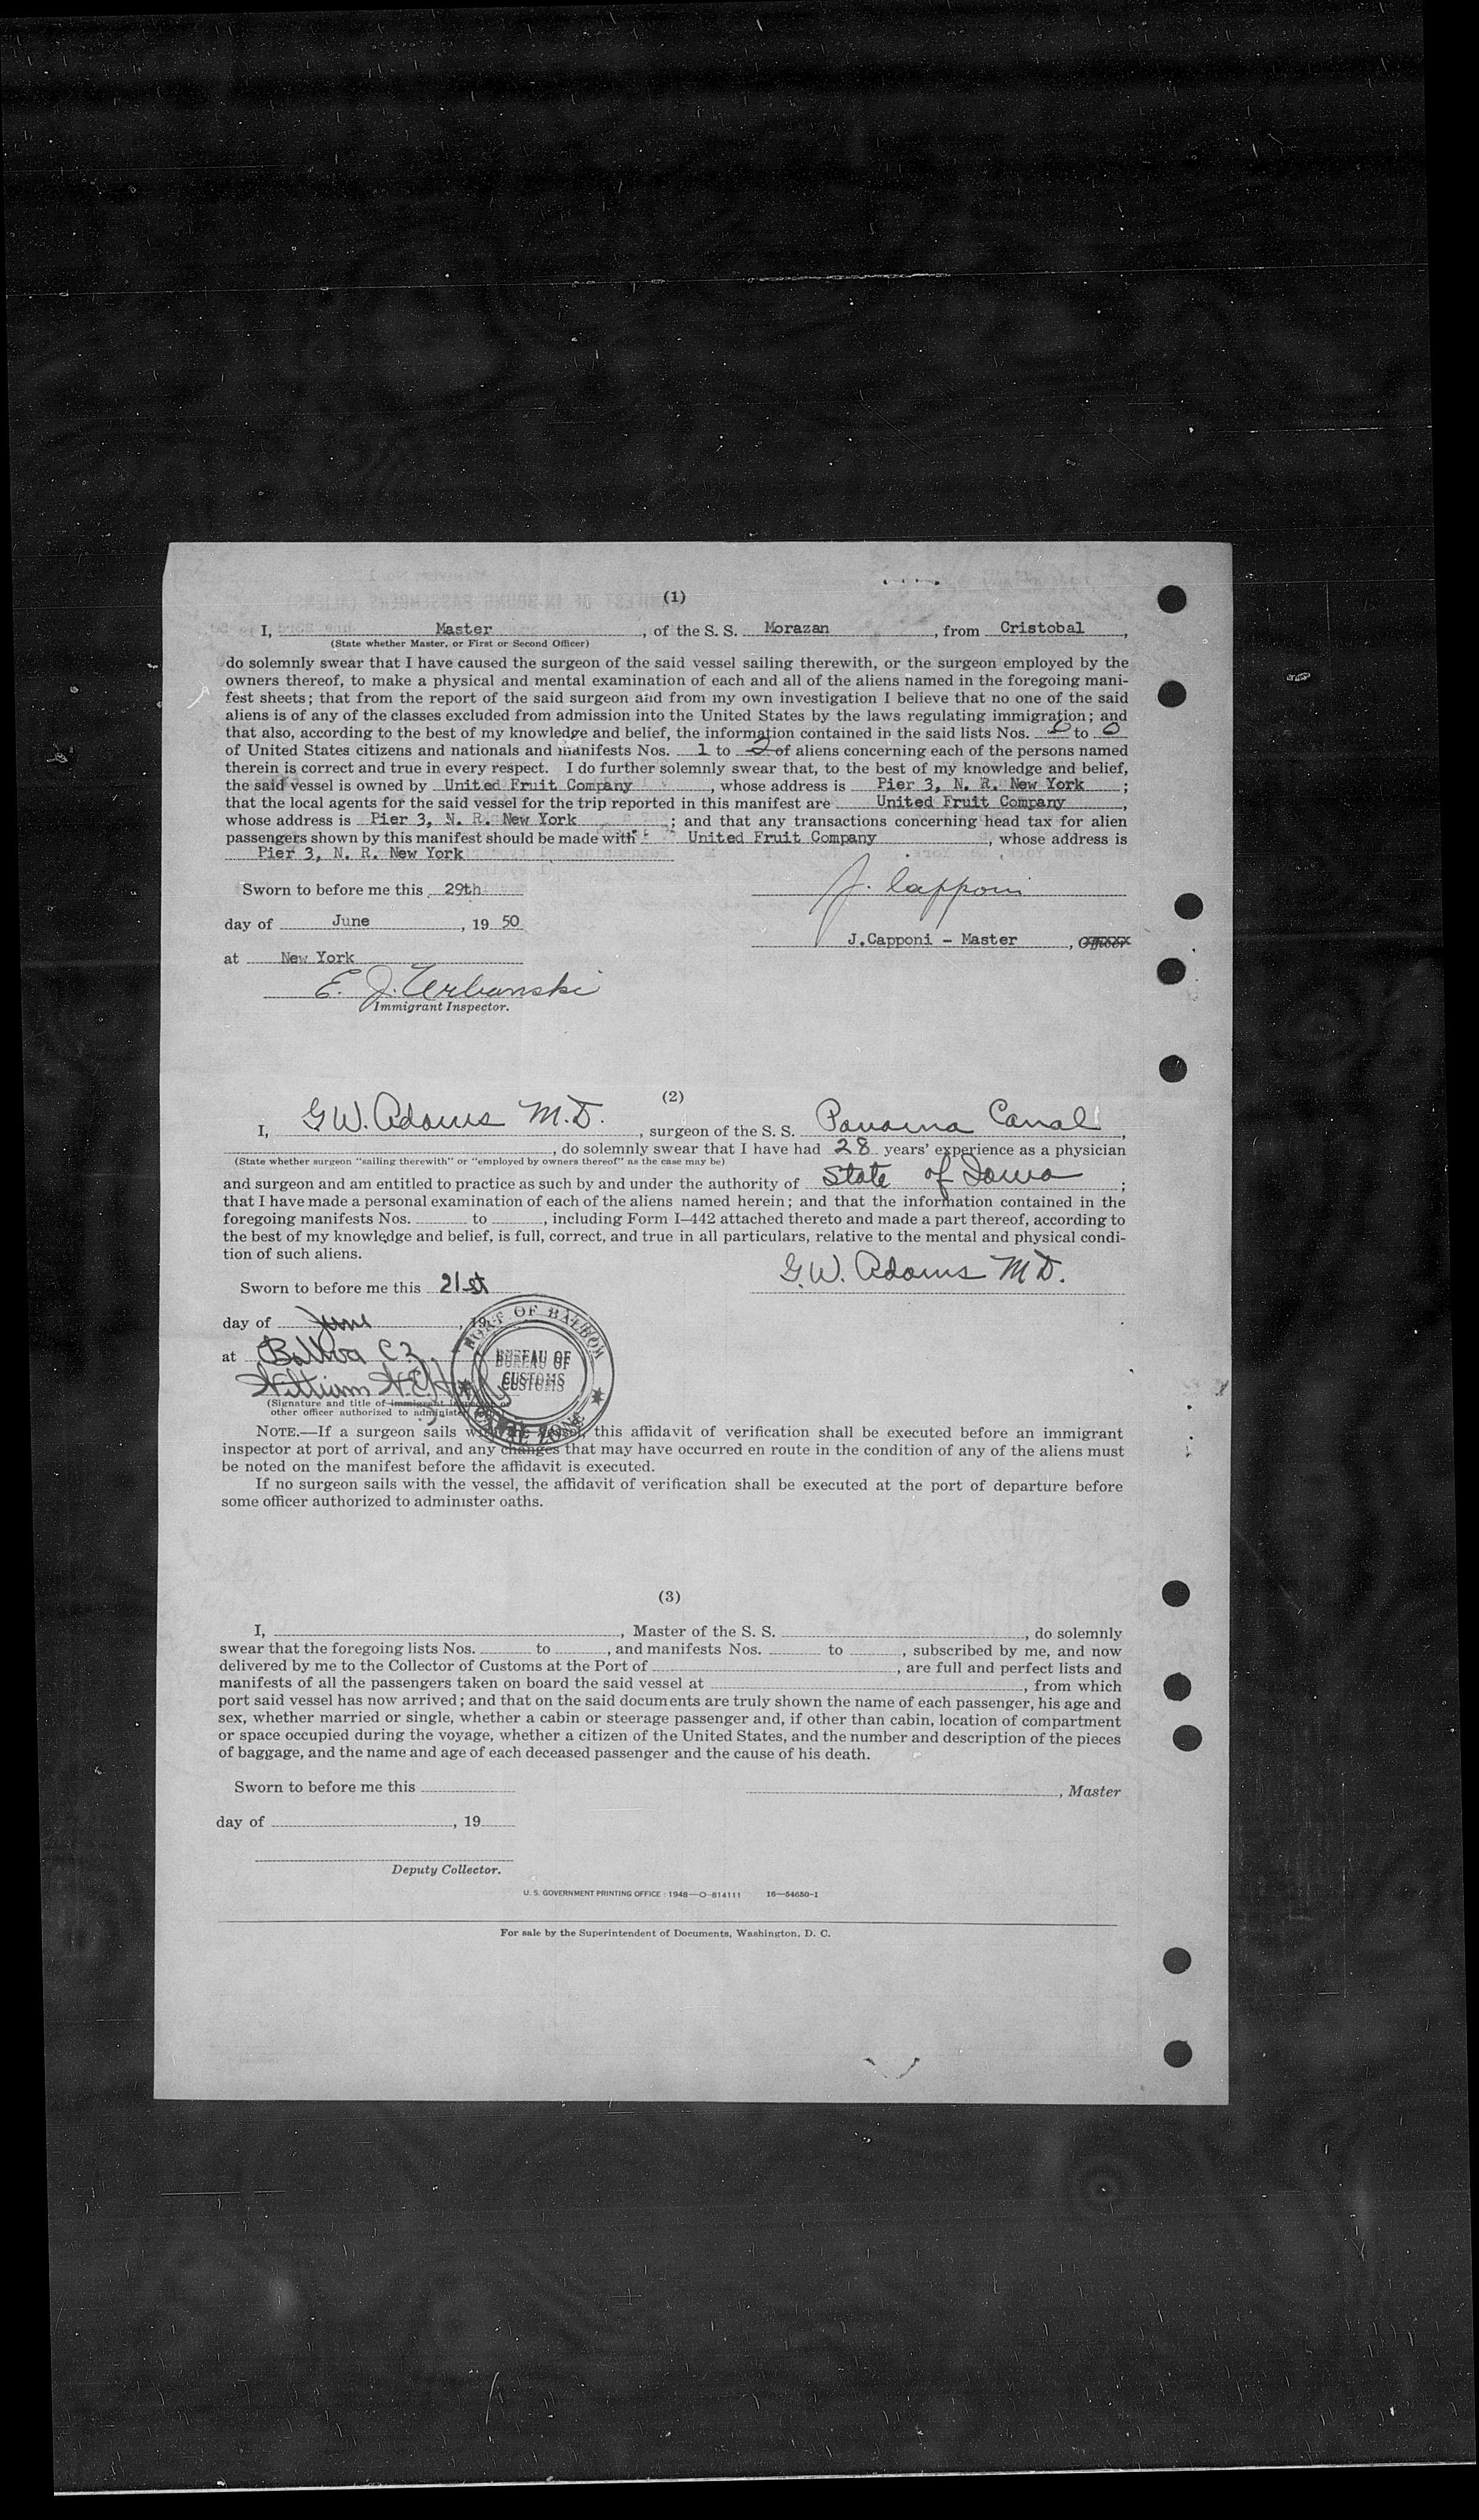 (1)
I, Master, of the S. S. Morazan, from Cristobal,
(State whether Master, or First or Second Officer)
do solemnly swear that I have caused the surgeon of the said vessel sailing therewith, or the surgeon employed by the
owners thereof, to make a physical and mental examination of each and all of the aliens named in the foregoing mani-
fest sheets; that from the report of the said surgeon and from my own investigation I believe that no one of the said
aliens is of any of the classes excluded from admission into the United States by the laws regulating immigration; and
that also, according to the best of my knowledge and belief, the information contained in the said lists Nos. 0 to 0
of United States citizens and nationals and manifests Nos. 1 to 2 of aliens concerning each of the persons named
therein is correct and true in every respect. I do further solemnly swear that, to the best of my knowledge and belief,
the said vessel is owned by United Fruit Company, whose address is Pier 3, N. R. New York;
that the local agents for the said vessel for the trip reported in this manifest are United Fruit Company,
whose address is Pier 3, N. R. New York; and that any transactions concerning head tax for alien
passengers shown by this manifest should be made with United Fruit Company, whose address is
Pier 3, N. R. New York
Sworn to before me this 29th
J. Capponi
day of June, 19 50
J.Capponi - Master, Officer
at New York
E. J. Urbanski
Immigrant Inspector.
(2)
I, G.W. Adams M.D., surgeon of the S. S. Panama Canal,
, do solemnly swear that I have had 28 years' experience as a physician
(State whether surgeon "sailing therewith" or "employed by owners thereof" as the case may be)
and surgeon and am entitled to practice as such by and under the authority of State of Iowa;
that I have made a personal examination of each of the aliens named herein; and that the information contained in the
foregoing manifests Nos. to , including Form I-442 attached thereto and made a part thereof, according to
the best of my knowledge and belief, is full, correct, and true in all particulars, relative to the mental and physical condi-
tion of such aliens.
G.W. Adams M.D.
Sworn to before me this 21st
day of June, 19
at Balboa CZ
William
PORT OF BALBOA
BUREAU OF
CUSTOMS
CANAL ZONE
(Signature and title of immigrant inspector or
other officer authorized to administer
NOTE.—If a surgeon sails with the vessel, this affidavit of verification shall be executed before an immigrant
inspector at port of arrival, and any changes that may have occurred en route in the condition of any of the aliens must
be noted on the manifest before the affidavit is executed.
If no surgeon sails with the vessel, the affidavit of verification shall be executed at the port of departure before
some officer authorized to administer oaths.
(3)
I, , Master of the S. S. , do solemnly
swear that the foregoing lists Nos. to , and manifests Nos. to , subscribed by me, and now
delivered by me to the Collector of Customs at the Port of , are full and perfect lists and
manifests of all the passengers taken on board the said vessel at , from which
port said vessel has now arrived; and that on the said documents are truly shown the name of each passenger, his age and
sex, whether married or single, whether a cabin or steerage passenger and, if other than cabin, location of compartment
or space occupied during the voyage, whether a citizen of the United States, and the number and description of the pieces
of baggage, and the name and age of each deceased passenger and the cause of his death.
Sworn to before me this
, Master
day of , 19
Deputy Collector.
U. S. GOVERNMENT PRINTING OFFICE : 1948—O-814111 16—54650-1
For sale by the Superintendent of Documents, Washington, D. C.